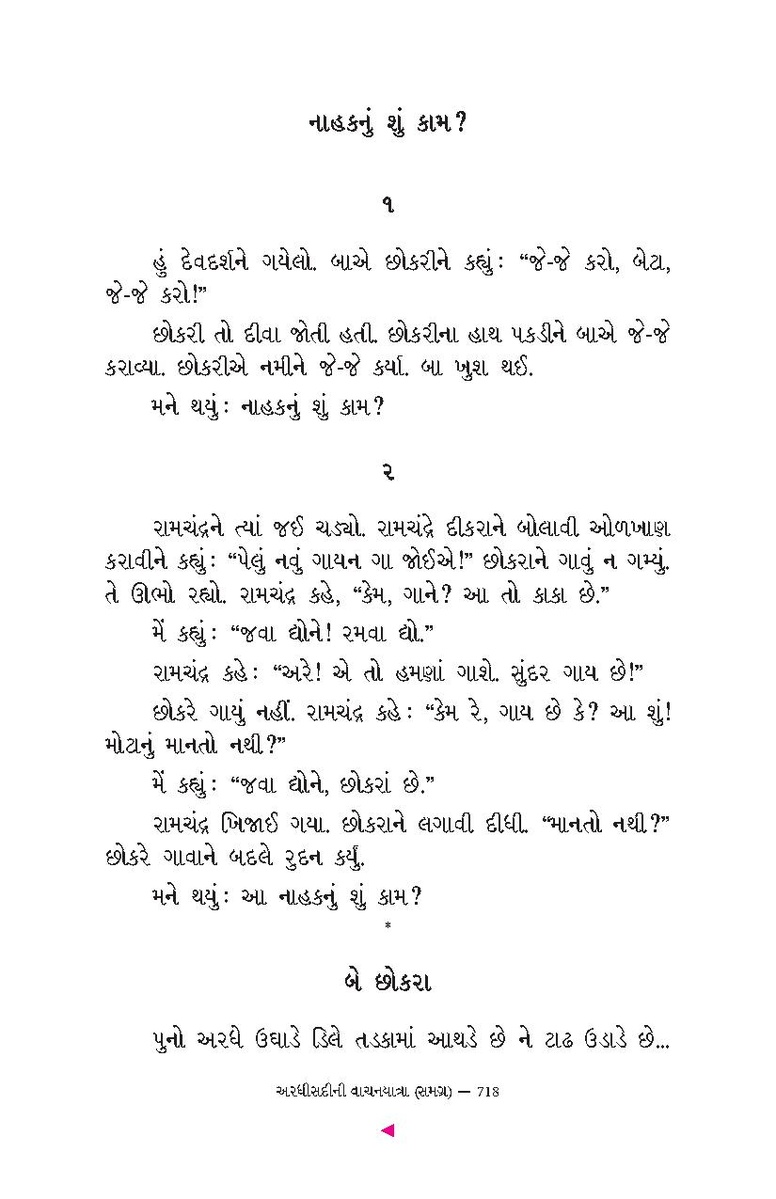 નાહકનું શું કામ?
૧
હું દેવદર્શને ગયેલો. બાએ છોકરીને કહ્યું : “જે-જે કરો, બેટા,
જે-જે કરો!”
છોકરી તો દીવા જોતી હતી. છોકરીના હાથ પકડીને બાએ જે-જે
કરાવ્યા. છોકરીએ નમીને જે-જે કર્યા. બા ખુશ થઈ.
મને થયું : નાહકનું શું કામ?
૨
રામચંદ્રને ત્યાં જઈ ચડ્યો. રામચંદ્રે દીકરાને બોલાવી ઓળખાણ
કરાવીને કહ્યું : “પેલું નવું ગાયન ગા જોઈએ!” છોકરાને ગાવું ન ગમ્યું.
તે ઊભો રહ્યો. રામચંદ્ર કહે, “કેમ, ગાને? આ તો કાકા છે.”
મેં કહ્યું : “જવા દ્યોને! રમવા દ્યો.”
રામચંદ્ર કહે : “અરે! એ તો હમણાં ગાશે. સુંદર ગાય છે!”
છોકરે ગાયું નહીં. રામચંદ્ર કહે : “કેમ રે, ગાય છે કે? આ શું!
મોટાનું માનતો નથી?”
મેં કહ્યું : “જવા દ્યોને, છોકરાં છે.”
રામચંદ્ર ખિજાઈ ગયા. છોકરાને લગાવી દીધી. “માનતો નથી?”
છોકરે ગાવાને બદલે રુદન કર્યું.
મને થયું : આ નાહકનું શું કામ?
*
બે છોકરા
પુનો અરધે ઉઘાડે ડિલે તડકામાં આથડે છે ને ટાઢ ઉડાડે છે...
અરધીસદીની વાચનયાત્રા (સમગ્ર) — 718